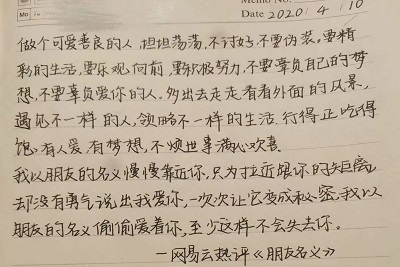 Mo
Memo No.
Date 2020 / 4 / 10
做个可爱善良的人,坦坦荡荡,不讨好不要伪装。要精
彩的生活,要乐观向前,要积极努力,不要辜负自己的梦
想,不要辜负爱你的人。多出去走走看看外面的风景,
遇见不一样的人,领略不一样的生活。行得正吃得
饱。有人爱,有梦想,不烦世事满心欢喜
我以朋友的名义慢慢靠近你,只为拉近跟你的距离,
却没有勇气说出我爱你,一次次让它变成秘密。我以
朋友的名义偷偷爱着你,至少这样不会失去你。
—网易云热评《朋友名义》